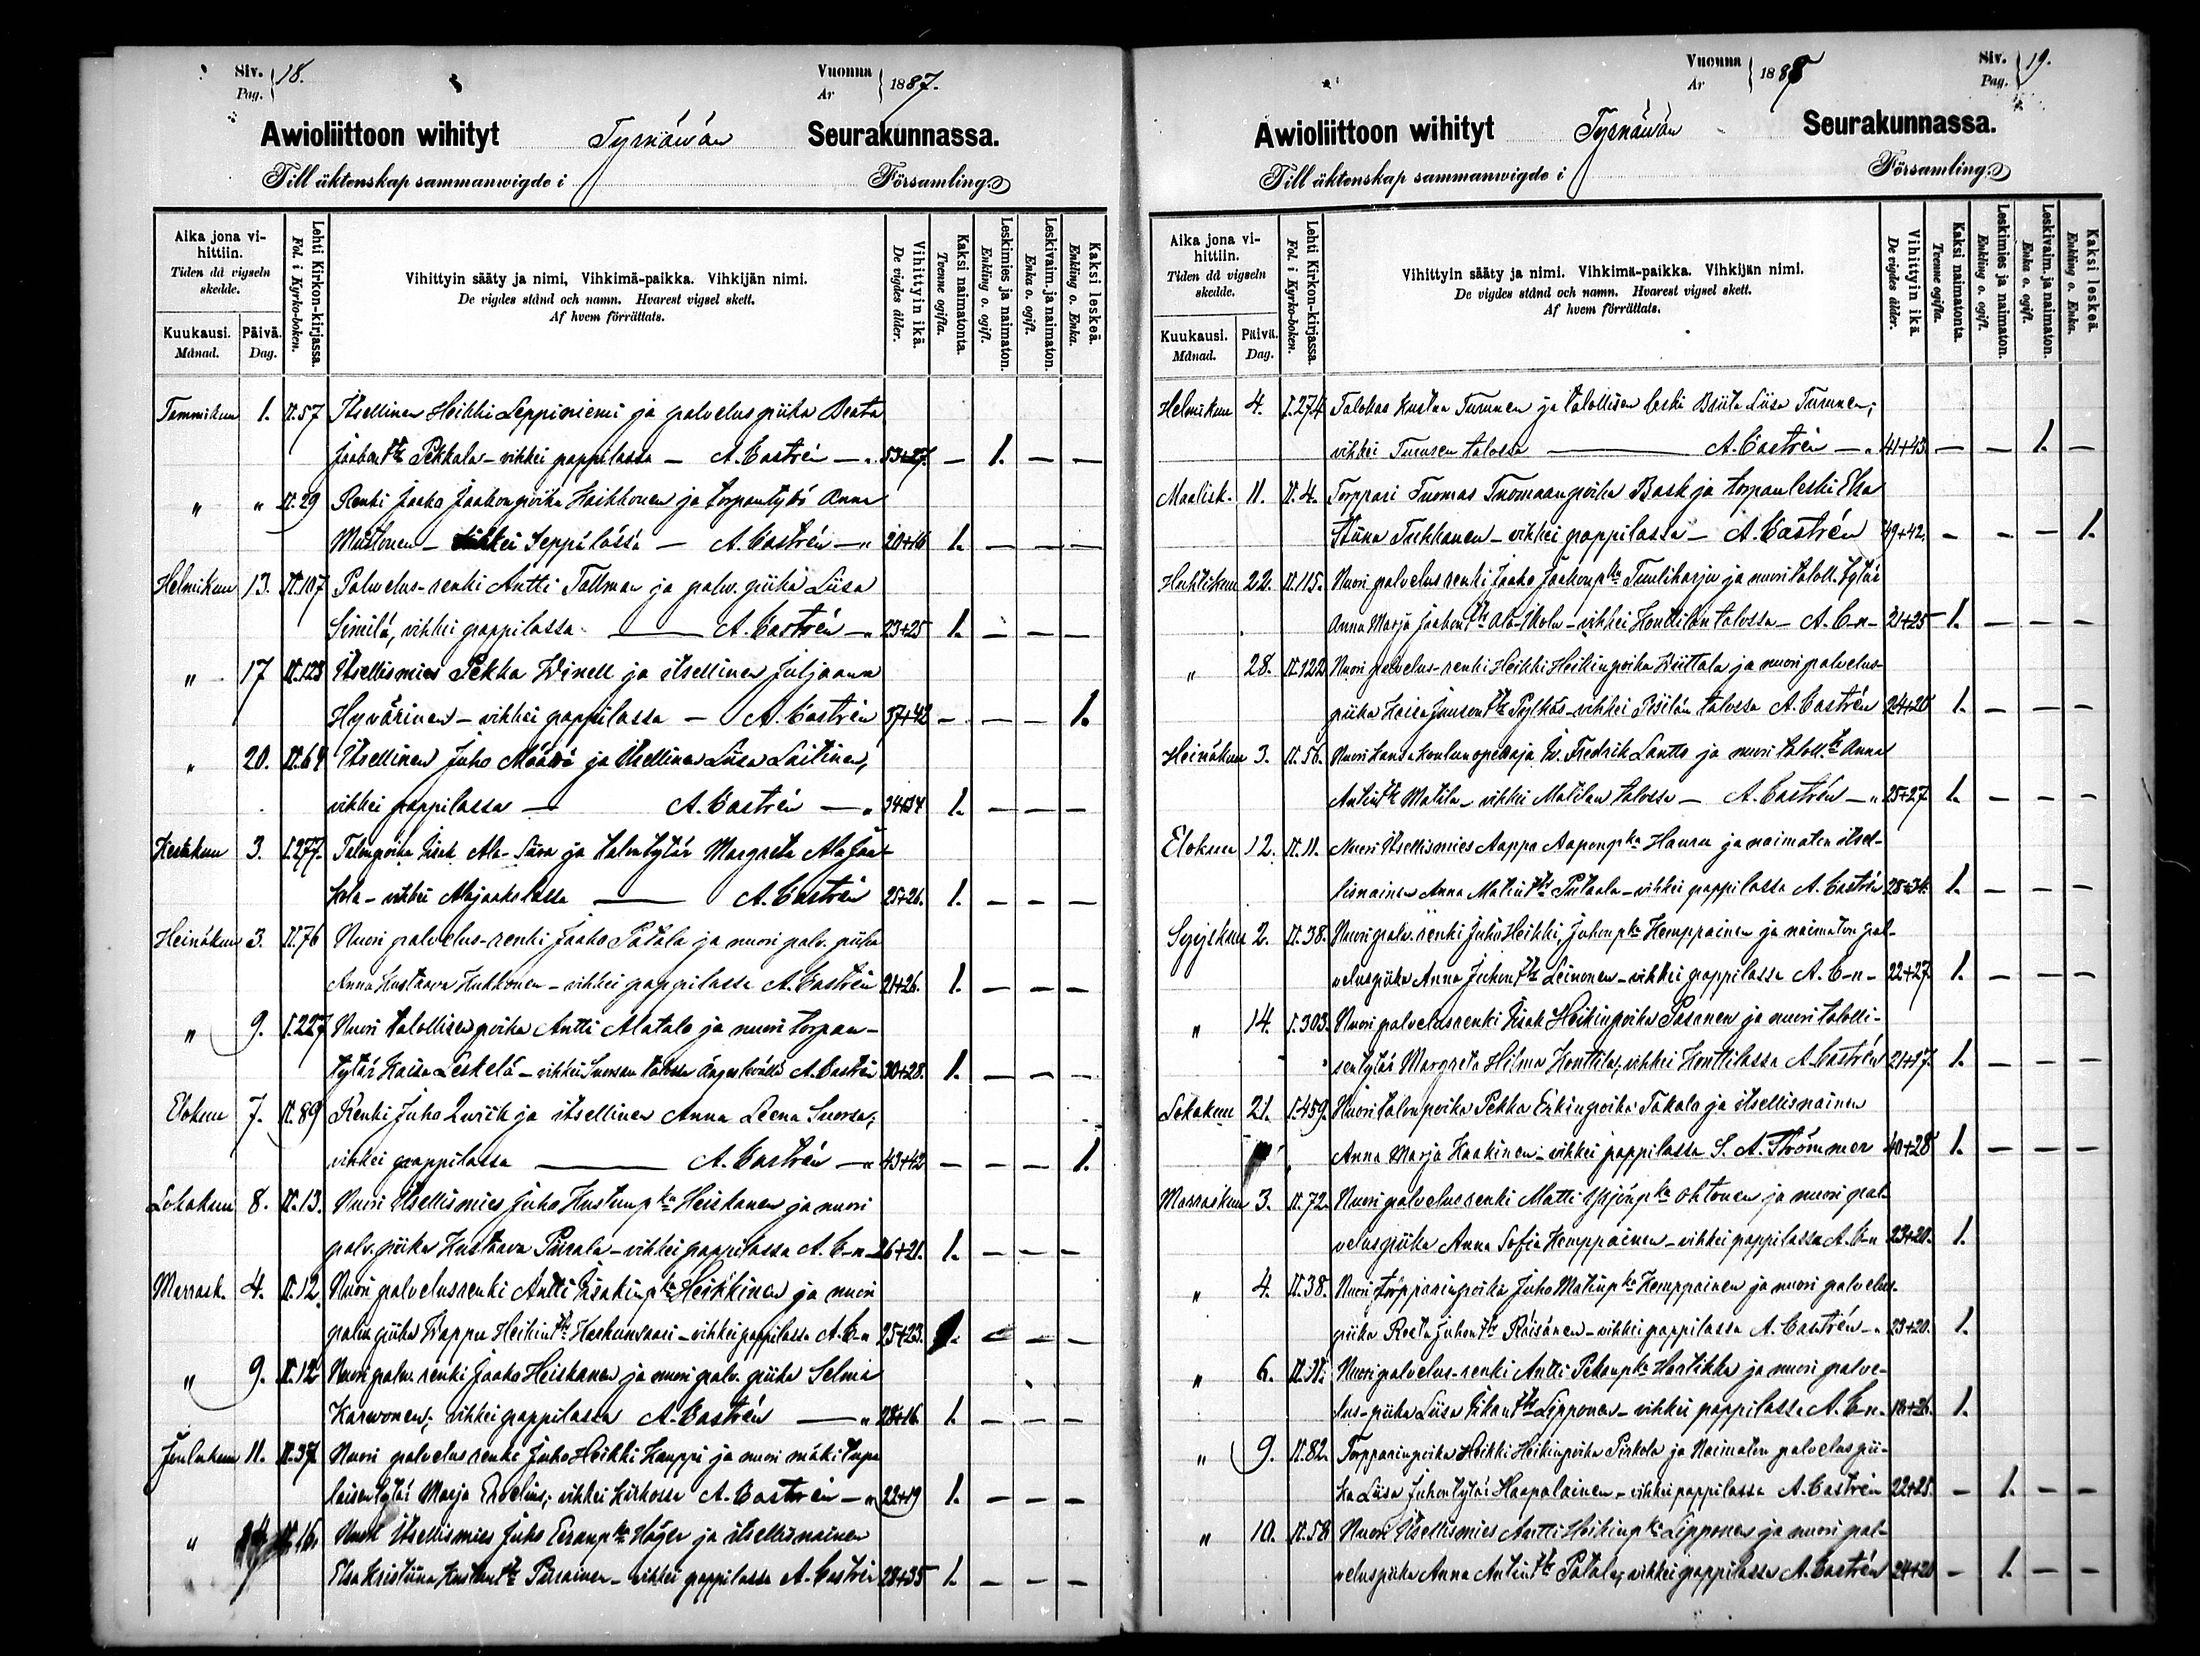 Siv. Pag. 18.
Vuonna Ar 1887.
Awioliittoon wihityt Tyrnäwän Seurakunnassa.
Till äktenskap sammanwigde i Församling.
Aika jona vihittiin. Tiden då vigseln skedde.
Kuukausi. Månad.
Päivä. Dag.
Lehti Kirkon-kirjassa. Fol. i Kyrko-boken.
Vihittyin sääty ja nimi, Vihkimä-paikka. Vihkijän nimi.
De vigdes stånd och namn. Hvarest vigsel skett.
Af hvem förrättats.
Vihittyin ikä. De vigdes ålder.
Kaksi naimatonta. Tvenne ogifta.
Leskimies ja naimaton. Enkling o. ogift.
Leskivaim. ja naimaton. Enka o. ogift.
Kaksi leskeä. Enkling o. Enka.
Tammikuu 1. II.57 Itsellinen Heikki Leppiniemi ja palvelus piika Beata
Jaakon tr Pekkala – vihkei pappilassa — A. Castrén — 53+27. — 1. — —
" " II.29 Renki Jaako Jaakonpoika Heikkonen ja torpantytö Anna
Mustonen – vihkei Seppälässä — A. Castrén — 20+16 1. — — —
Helmikuu 13. II.107 Palvelus-renki Antti Tallman ja palv. piika Liisa
Similä, vihkei pappilassa — A. Castrén — 23+25 1. — — —
" 17 II.123 Itsellismies Pekka Winell ja itsellinen Juljaana
Hyvärinen – vihkei pappilassa — A. Castrén 37+42 — — — 1.
" 20. II.64 Itsellinen Juho Määttä ja Itsellinen Liisa Laitinen,
vihkei pappilassa — A. Castrén — 34+34 1. — — —
Kesäkuu 3. I.277. Talonpoika Iisak Ala- ja talontytär Margareta Ala Jaa-
kola – vihkei Alajaakolassa — A. Castrén 25+26. 1. — — —
Heinäkuu 3. II.76 Nuori palvelus-renki Jaako Patala ja nuori palv. piika
Anna Kustaava Kukkonen – vihkei pappilassa A. Castrén 21+26. 1. — — —
" 9. I.227 Nuori talollisen poika Antti Alatalo ja nuori torpan-
tytär Kaisa Leskelä – vihkei Suorsan talossa Ängeslevällä A. Castrén 30+28. 1. — — —
Elokuu 7. II.89 Renki Juho Qwick ja itsellinen Anna Leena Suorsa;
vihkei pappilassa — A. Castrén — 43+42 — — — 1.
Lokakuu 8. II.13. Nuori Itsellismies Juho Kustunp ka Heiskanen ja nuori
palv. piika Kustaava Pirrala – vihkei pappilassa A. C–n – 26+21. 1. — — —
Marrask. 4. II.12. Nuori palvelusrenki Antti Iisakinp ka Heikkinen ja nuori
palv. piika Wappu Heikin tr – vihkei pappilassa A. C–n 25+23. 1. — — —
" 9. II.12 Nuori palv. renki Jaako Heiskanen ja nuori palv. piika Selma
Karwonen; vihkei pappilassa A. Castrén — 28+16. 1. — — —
Joulukuu 11. II.37. Nuori palvelus renki Juho Heikki Kauppi ja nuori mäkitupa
laisen tytär Marja; vihkei kirkossa A. Castrén — 22+19 1. — — —
" II.16. Nuori Itsellismies Juho Eeranp ka Häger ja itsellisnainen
Elsa Kristiina Kustun tr Piirainen – vihkei pappilassa A. Castrén 28+35 1. — — —
Siv. Pag. 19.
Vuonna Ar 1888
Awioliittoon wihityt Tyrnäwän Seurakunnassa.
Till äktenskap sammanwigde i Församling.
Aika jona vihittiin. Tiden då vigseln skedde.
Kuukausi. Månad.
Päivä. Dag.
Lehti Kirkon-kirjassa. Fol. i Kyrko-boken.
Vihittyin sääty ja nimi. Vihkimä-paikka. Vihkijän nimi.
De vigdes stånd och namn. Hvarest vigsel skett.
Af hvem förrättats.
Vihittyin ikä. De vigdes ålder.
Kaksi naimatonta. Tvenne ogifta.
Leskimies ja naimaton. Enkling o. ogift.
Leskivaim. ja naimaton. Enka o. ogift.
Kaksi leskeä. Enkling o. Enka.
Helmikuu 4. I.274 Talokas Kustaa Turunen ja talollisen leski Briita Liisa Turunen;
vihkei Turusen talossa — A. Castrén — 41+43. — — 1. —
Maalisk. 11. II.4. Torppari Tuomas Tuomaanpoika Bask ja torpan leski Elsa
Stiina Tukkanen – vihkei pappilassa – A. Castrén 49+42. — — — 1.
Huhtikuu 22. II.115. Nuori palvelus renki Jaako Jaakonp ka Tuuliharju ja nuori taloll. tytär
Anna Marja Jaakon tr Ala-Ikola – vihkei Honttilan talossa – A. C–n – 21+25 1. — — —
" 28. II.122 Nuori palvelus-renki Heikki Heikinpoika Wiittala ja nuori palvelus-
piika Kaisa Juuson tr Pylkäs – vihkei Piisilän talossa A. Castrén 24+20 1. — — —
Heinäkuu 3. II.56. Nuori kansakoulun opettaja W. Fredrik Lantto ja nuori taloll. tr Anna
Antin tr Matila – vihkei Matilan talossa — A. Castrén — 25+27 1. — — —
Elokuu 12. II.11. Nuori Itsellismies Aappo Aaponp ka Hauru ja naimaton itsel-
lisnainen Anna Matin tr – vihkei pappilassa A. Castrén 28+34. 1. — — —
Syyskuu 2. II.38. Nuori palv. renki Juho Heikki Juhonp ka Kemppainen ja naimaton pal-
veluspiika Anna Juhon tr Leinonen – vihkei pappilassa A. C–n – 22+27 1. — — —
" 14. I.303. Nuori palvelusrenki Iisak Heikinpoika Pasanen ja nuori talolli-
sentytär Margreta Hilma Honttila; vihkei Honttilassa A. Castrén 21+17. 1. — — —
Lokakuu 21. I.459. Nuori talonpoika Pekka Erkinpoika Takalo ja itsellisnainen
Anna Marja Kaakinen – vihkei pappilassa S. A. Strömmer 40+28 1. — — —
Marraskuu 3. II.72. Nuori palvelusrenki Matti Yrjönp ka Ohtonen ja nuori pal-
veluspiika Anna Sofia Kemppainen – vihkei pappilassa A. C–n 23+20. 1.
" 4. II.38. Nuori torpparinpoika Juho Matinp ka Kemppainen ja nuori palvelus-
piika Reeta Juhon tr Räisänen – vihkei pappilassa A. Castrén – 23+20. 1.
" 6. II.31. Nuori palvelus-renki Antti Pekanp ka Hartikka ja nuori palve-
lus-piika Liisa Pekan tr Lipponen – vihkei pappilassa A. C–n. 18+26. 1.
" 9. II.82. Torpparinpoika Heikki Heikinpoika Pirkola ja Naimaton palveluspii-
ka Liisa Juhontytär Haapalainen – vihkei pappilassa A. Castrén 22+25. — 1. — —
" 10. II.58 Nuori Itsellismies Antti Heikinp ka Lipponen ja nuori pal-
veluspiika Anna Antin tr Patala; vihkei pappilassa A. Castrén 24+20 — 1. — —